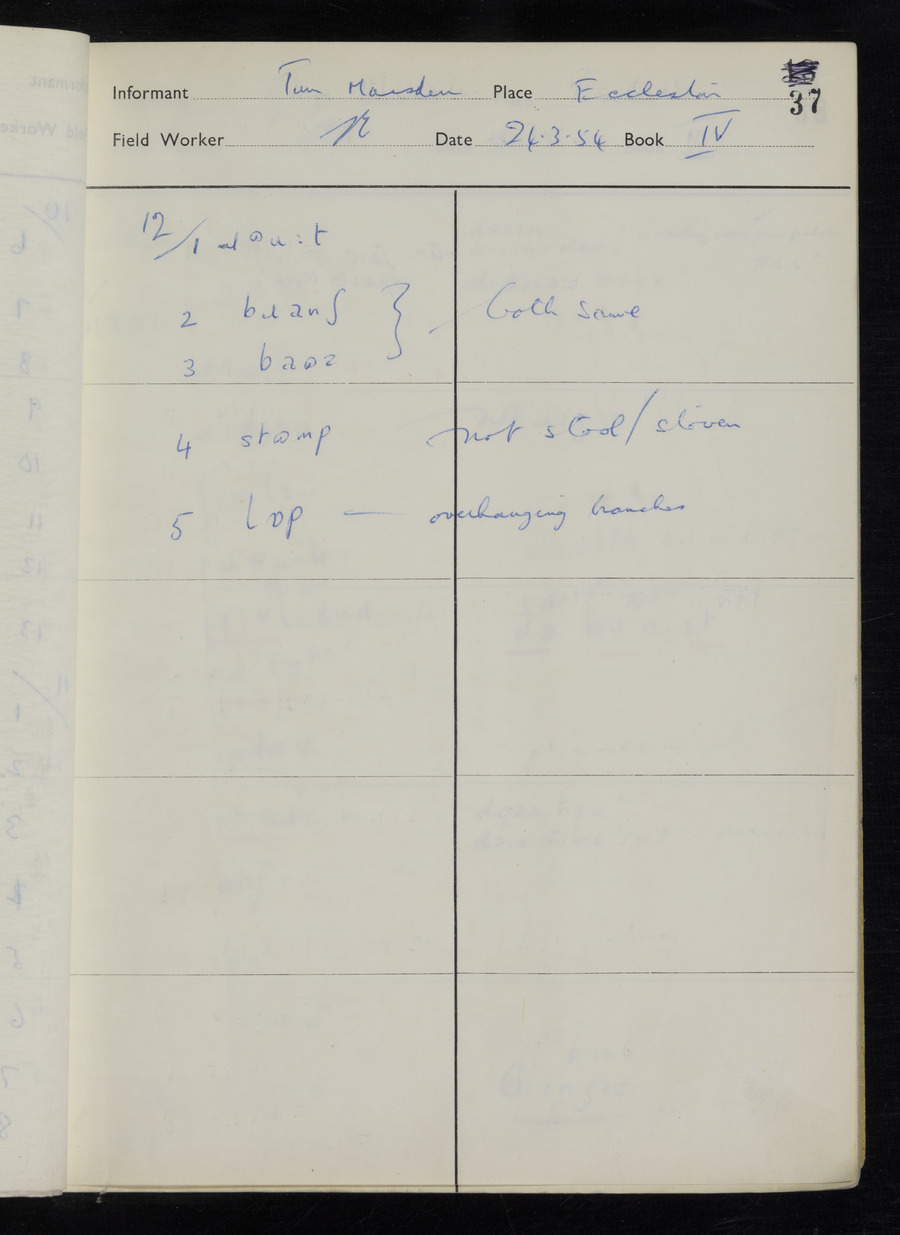 Informant Tom Marsden Place Eccleston
37
Field Worker Date 24.3.54 Book IV
12/1
2 bɹanʃ } both same
3 baʊz
4 stʊmp not stool/stoven
5 lɒp — overhanging branches